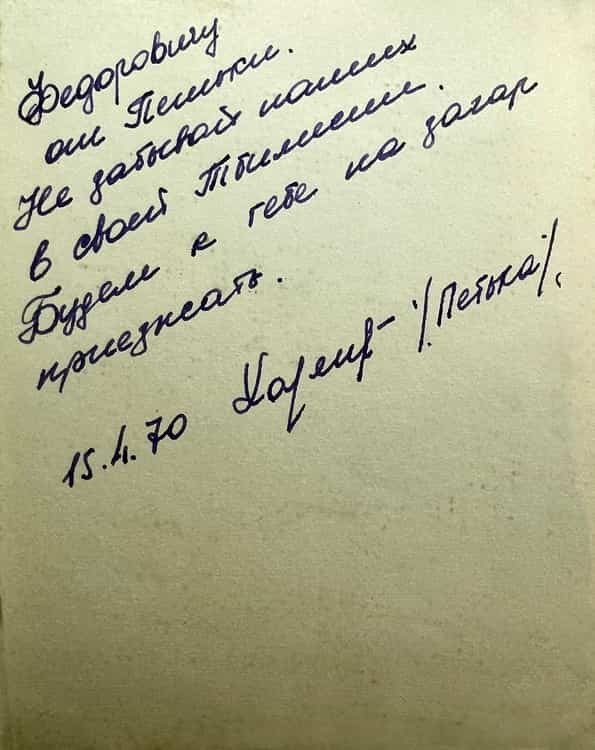 Федоровичу
от Петьки.
Не забывай наших
в своей Тбилиси.
Будем к тебе на загар
приезжать.
15.4.70 /Петька/.